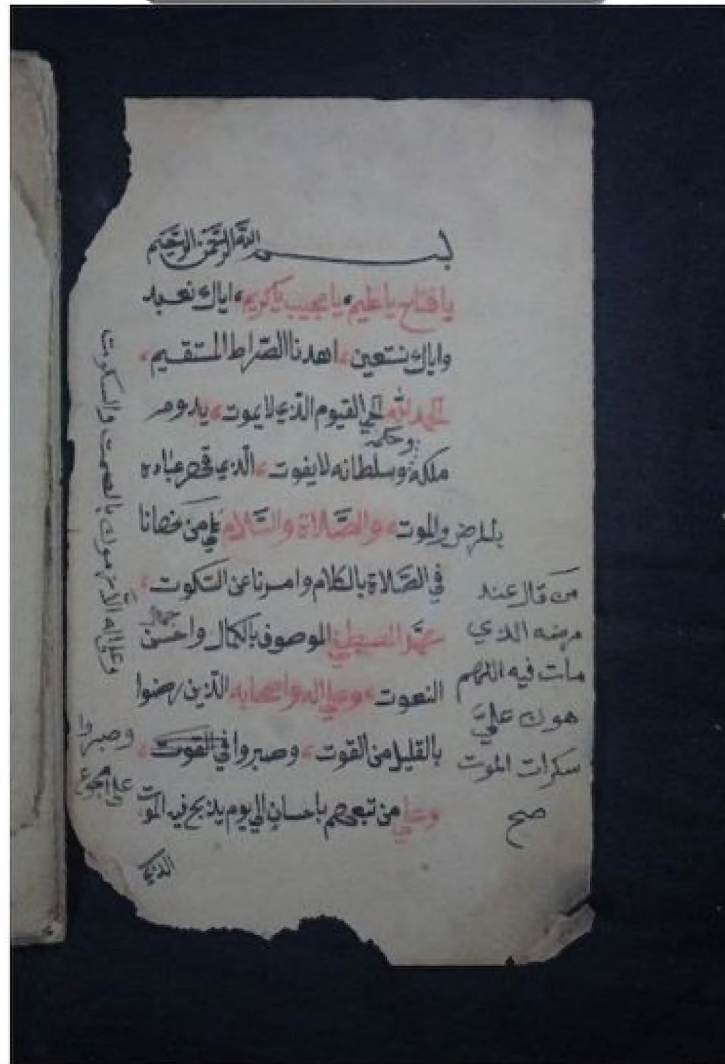 بسم الله الرحمن الرحيم
يا فتاح يا عليم يا مجيب يا كريم اياك نعبد
واياك نستعين اهدنا الصراط المستقيم
الحمد لله الحي القيوم الذي لا يموت يدوم
وحكمه
ملكه وسلطانه لا يفوت الذي قهر عباده
بالمرض والموت والصلاة والسلام على من
في الصلاة بالكلام وامرنا عن السكوت
محمد المصطفى الموصوف بالكمال واحسن
جمال
النعوت وعلى اله واصحابه الذين رضوا
بالقليل من القوت وصبروا في القوت
وعلى من تبعهم باحسان الى يوم يذبح فيه الموت
من قال عند
مرضه الذي
مات فيه اللهم
هون علي
سكرات الموت
صح
بالصمت والسكوت
وصبروا
على